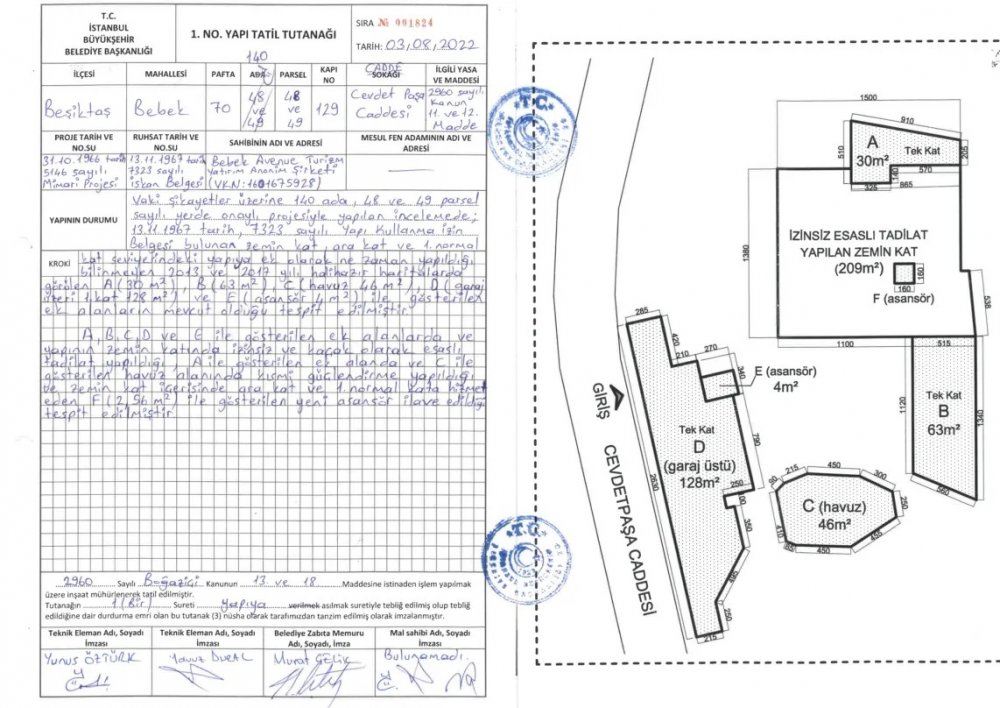 T.C.
İSTANBUL
BÜYÜKŞEHİR
BELEDİYE BAŞKANLIĞI
1. NO. YAPI TATİL TUTANAĞI
SIRA № 001824
TARİH: 03,08,2022
İLÇESİ MAHALLESİ PAFTA ADA PARSEL KAPI NO CADDE SOKAĞI İLGİLİ YASA VE MADDESİ
140
Beşiktaş Bebek 70 48 ve 49 48 ve 49 129 Cevdet Paşa Caddesi 2960 sayılı Kanun 11 ve 12. Madde
PROJE TARİH VE NO.SU RUHSAT TARİH VE NO.SU SAHİBİNİN ADI VE ADRESİ MESUL FEN ADAMININ ADI VE ADRESİ
31.10.1966 tarih 5146 sayılı Mimari Projesi
13.11.1967 tarih 7323 sayılı İskan Belgesi
Bebek Avenue Turizm
Yatırım Anonim Şirketi
(VKN:1601675928)
YAPININ DURUMU
Vaki şikayetler üzerine 140 ada, 48 ve 49 parsel
sayılı yerde onaylı projesiyle yapılan incelemede;
13.11.1967 tarih, 7323 sayılı Yapı Kullanma İzin
Belgesi bulunan zemin kat, ara kat ve 1.normal
KROKİ
kat seviyerindeki yapıya ek olarak ne zaman yapıldığı
bilinmeyen 2013 ve 2017 yılı halihazır haritalarda
görülen A(30 m²), B(63 m²), C(havuz 46 m²), D(garaj
üzeri 1.kat 128 m²) ve E(asansör 4 m²) ile gösterilen
ek alanların mevcut olduğu tespit edilmiştir.
A, B, C, D ve E ile gösterilen ek alanlarda ve
yapının zemin katında izinsiz ve kaçak olarak esaslı
tadilat yapıldığı A ile gösterilen ek alanda ve C ile
gösterilen havuz alanında kısmi güçlendirme yapıldığı
ve zemin kat içerisinde ara kat ve 1.normal kata hizmet
eden F(2,56 m²) ile gösterilen yeni asansör ilave edildiği
tespit edilmiştir
2960 Sayılı Boğaziçi Kanunun 13 ve 18 Maddesine istinaden işlem yapılmak
üzere inşaat mühürlenerek tatil edilmiştir.
Tutanağın 1(Bir) Sureti yapıya verilmek asılmak suretiyle tebliğ edilmiş olup tebliğ
edildiğine dair durdurma emri olan bu tutanak (3) nüsha olarak tarafımızdan tanzim edilmiş olarak imzalanmıştır.
Teknik Eleman Adı, Soyadı İmzası
Teknik Eleman Adı, Soyadı İmzası
Belediye Zabıta Memuru Adı, Soyadı, İmza
Mal sahibi Adı, Soyadı İmzası
Yunus ÖZTÜRK Yavuz DURAL Murat ÇELİK Bulunamadı.
T.C.
T.C.
1500
910
A
30m²
Tek Kat
510
205
140
570
325
865
İZİNSİZ ESASLI TADİLAT
YAPILAN ZEMİN KAT
(209m²)
1380
160
160
F (asansör)
538
1100
515
285
420
210
270
340
E (asansör)
4m²
GİRİŞ
CEVDETPAŞA CADDESİ
Tek Kat
D
(garaj üstü)
128m²
2630
790
250
100
350
495
250
215
Tek Kat
B
63m²
1120
1340
560
C (havuz)
46m²
90
215
450
300
250
455
450
85
410